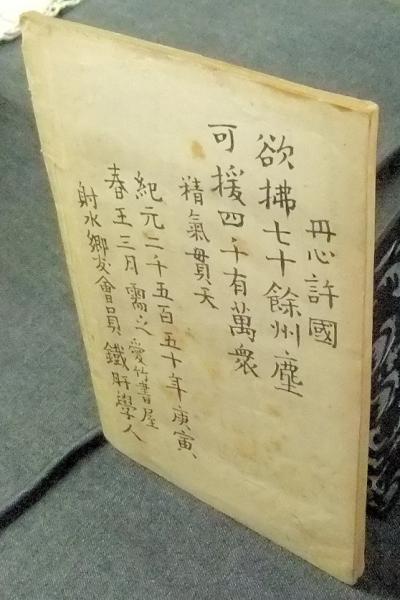 丹心許國
欲拂七十餘州塵
可援四千有萬衆
精氣貫天
紀元二千五百五十年庚寅
春王三月需之愛竹書屋
射水鄉友會員鐵肝學人